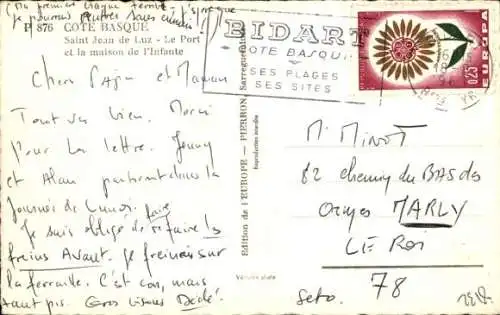 P 876 COTE BASQUE
Saint Jean de Luz - Le Port
et la maison de l'Infante
Chers Papa et Maman
Tout va bien. Merci
pour la lettre. Jenny
et Alan partiront dans la
journée de Lundi.
Je suis obligé de refaire les
faire
freins Avant. Je freinais sur
la ferraille. C'est con, mais
tant pis. Gros bisous Dédé.
Edition de l'EUROPE - PIERRON, Sarreguemines
Reproduction interdite
Véritable photo
BIDART
COTE BASQUE
SES PLAGES
SES SITES
EUROPA
0,25
M. MINOT
82 chemin du BAS des
Ormes MARLY
LE ROI
78